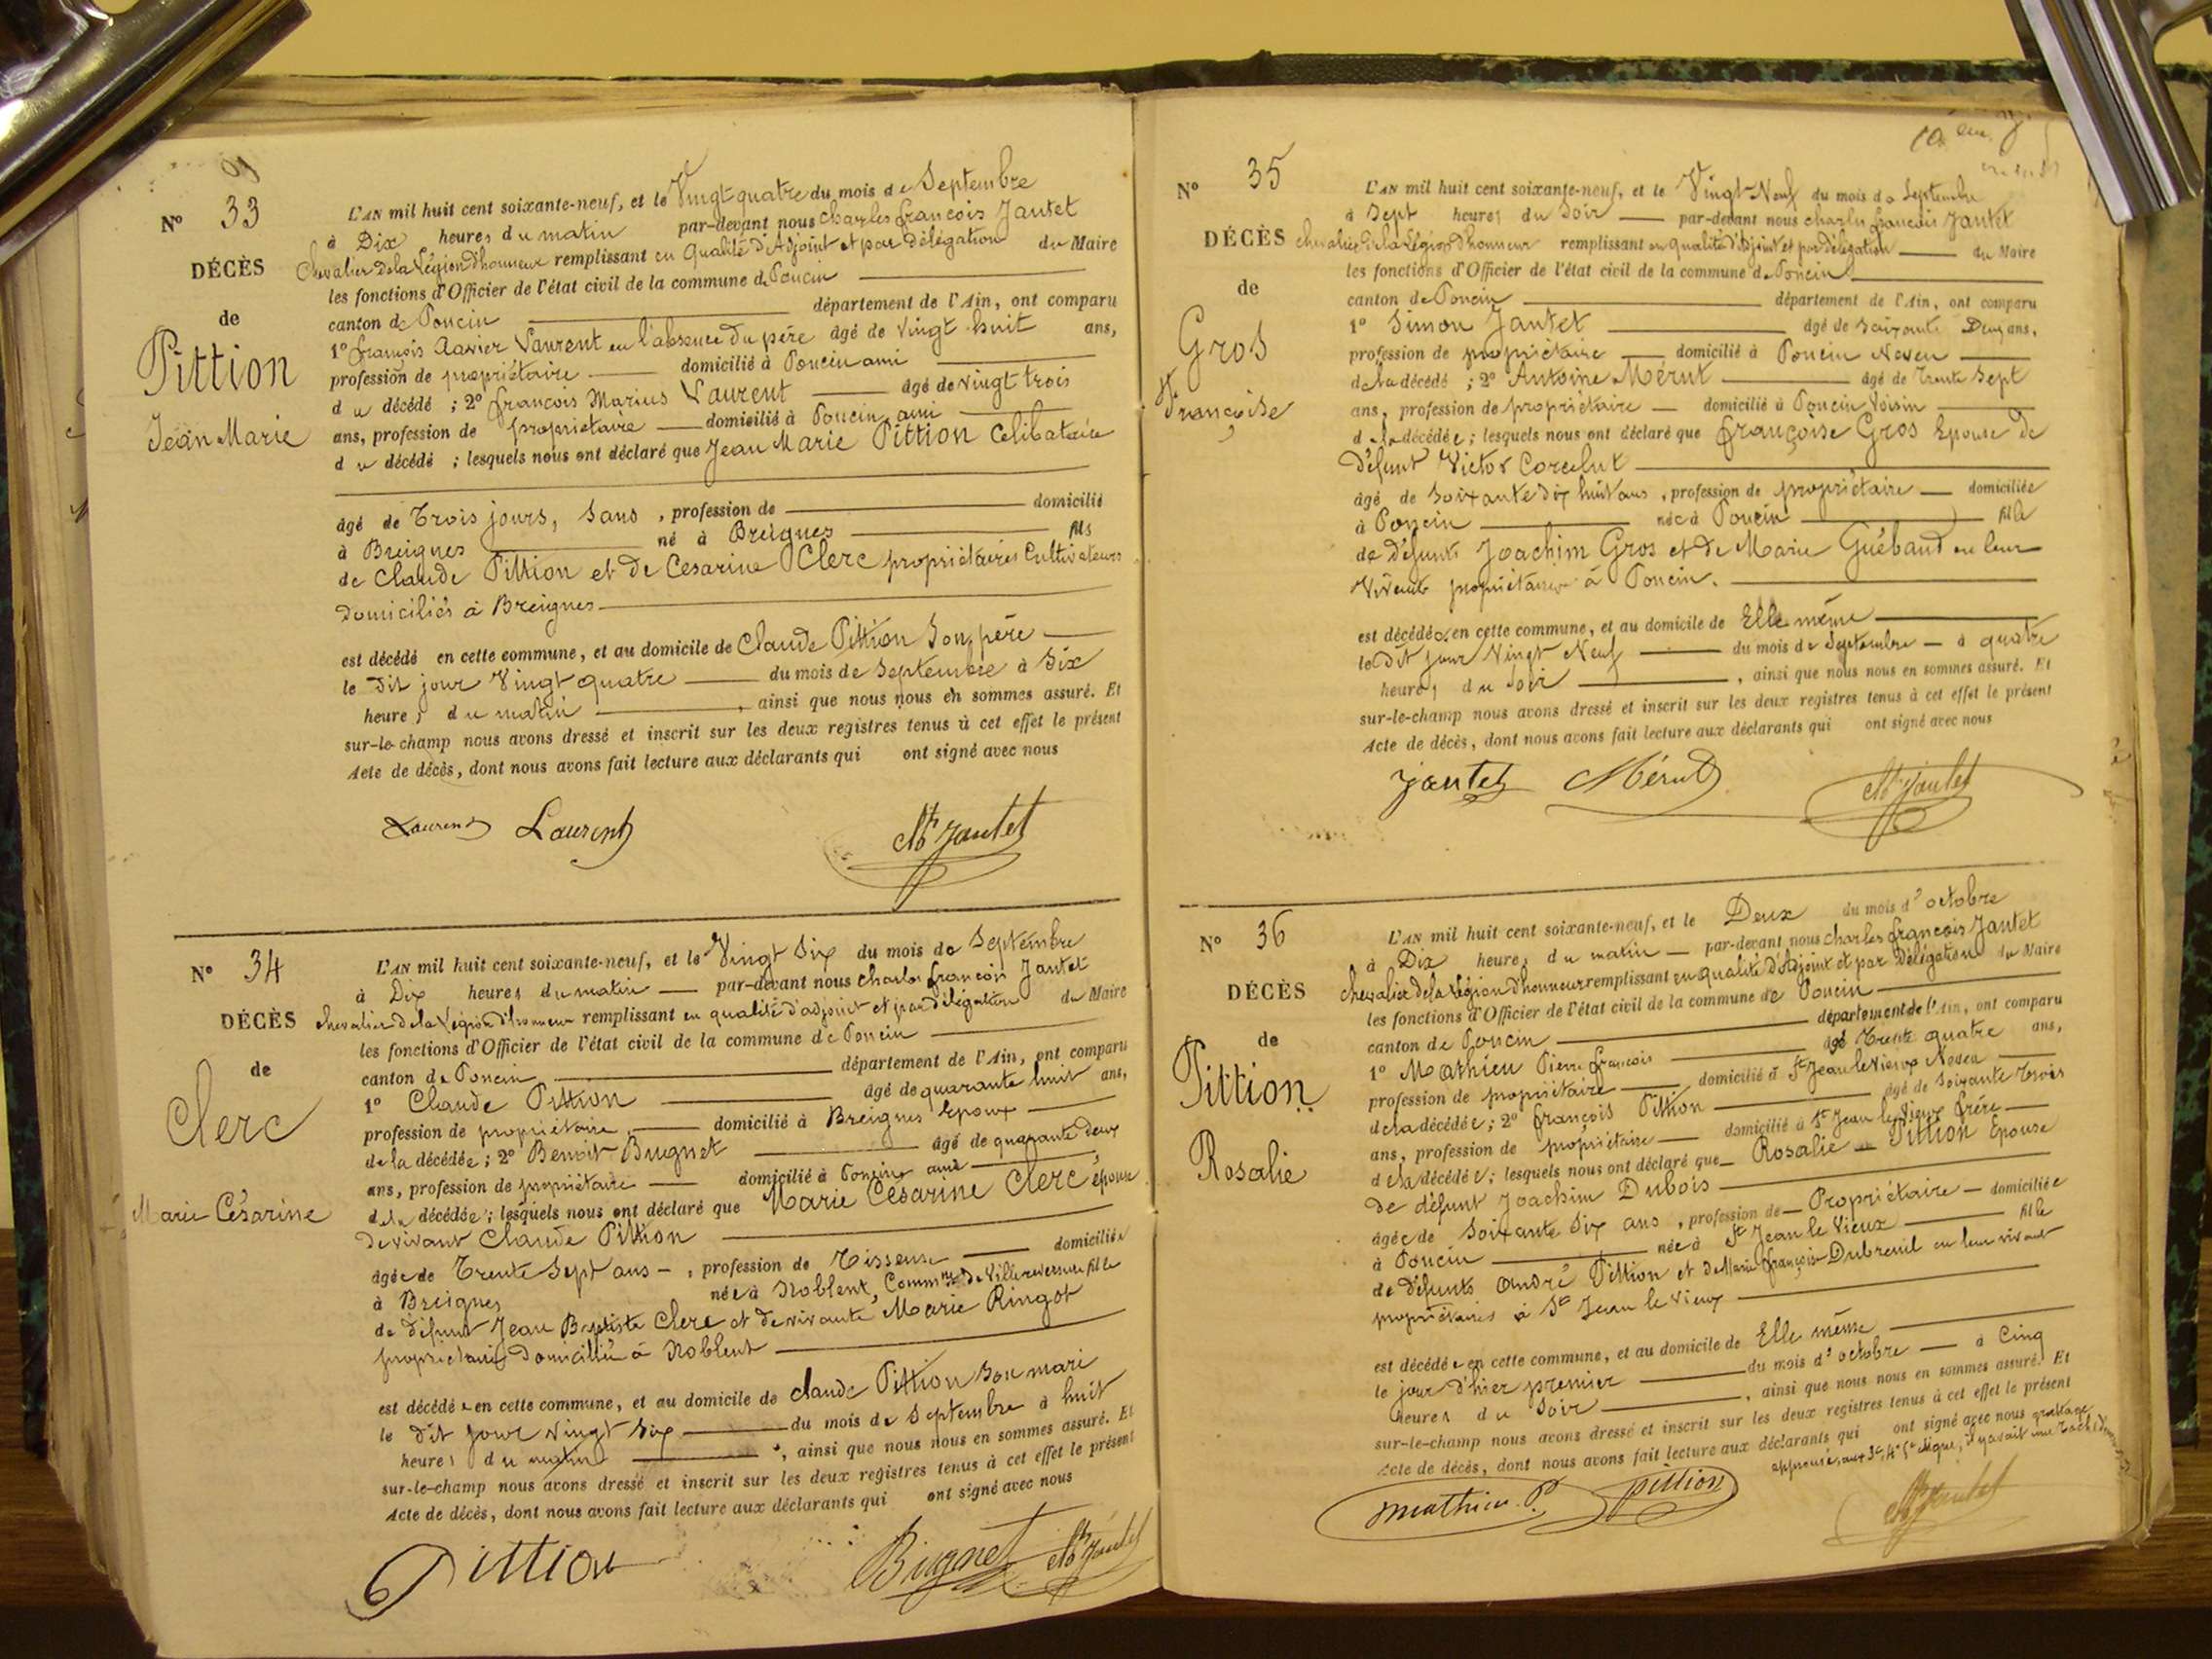 N° 33
DÉCÈS
de
Pittion
Jean Marie
L'AN mil huit cent soixante-neuf, et le Vingt quatre du mois de Septembre
à Dix heures du matin par-devant nous Charles françois Jantet
Chevalier de la Légion d'honneur remplissant en qualité d'Adjoint et par Délégation du Maire
les fonctions d'Officier de l'état civil de la commune de Poncin
canton de Poncin département de l'Ain, ont comparu
1° françois Xavier Laurent en l'absence du père âgé de vingt huit ans,
profession de propriétaire domicilié à Poncin ami
du décédé ; 2° françois Marius Laurent âgé de vingt trois
ans, profession de propriétaire domicilié à Poncin, ami
du décédé ; lesquels nous ont déclaré que Jean Marie Pittion Celibataire
âgé de Trois jours, sans , profession de domicilié
à Breignes né à Breignes fils
de Claude Pittion et de Cesarine Clerc propriétaires Cultivateurs
domiciliés à Breignes
est décédé en cette commune, et au domicile de Claude Pittion Son père
le dit jour Vingt quatre du mois de Septembre à Six
heures du matin , ainsi que nous nous en sommes assuré. Et
sur-le-champ nous avons dressé et inscrit sur les deux registres tenus à cet effet le présent
Acte de décès, dont nous avons fait lecture aux déclarants qui ont signé avec nous
Laurent Laurent Ch Jantet
N° 34
DÉCÈS
de
Clerc
Marie Césarine
L'AN mil huit cent soixante-neuf, et le Vingt Six du mois de Septembre
à Dix heures du matin par-devant nous Charles françois Jantet
chevalier de la Légion d'honneur remplissant en qualité d'adjoint et par délégation du Maire
les fonctions d'Officier de l'état civil de la commune de Poncin
canton de Poncin département de l'Ain, ont comparu
1° Claude Pittion âgé de quarante huit ans,
profession de propriétaire, domicilié à Breignes Epoux
de la décédée ; 2° Benoit Bugnet âgé de quarante deux
ans, profession de propriétaire domicilié à Poncin ami
de la décédée ; lesquels nous ont déclaré que Marie Césarine Clerc épouse
de vivant Claude Pittion
âgée de Trente Sept ans , profession de Tisseuse domiciliée
à Breignes née à Noblent, Commne de Villereversure fille
de défunt Jean Baptiste Clerc et de vivante Marie Ringot
propriétaires domiciliés à Noblent
est décédée en cette commune, et au domicile de claude Pittion Son mari
le dit jour vingt Six du mois de Septembre à huit
heures du matin , ainsi que nous nous en sommes assuré. Et
sur-le-champ nous avons dressé et inscrit sur les deux registres tenus à cet effet le présent
Acte de décès, dont nous avons fait lecture aux déclarants qui ont signé avec nous
Pittion Bugnet Ch Jantet
N° 35
DÉCÈS
de
Gros
Françoise
L'AN mil huit cent soixante-neuf, et le Vingt Neuf du mois de Septembre
à Sept heures du Soir par-devant nous charles françois Jantet
chevalier de la Légion d'honneur remplissant en qualité d'adjoint et par délégation du Maire
les fonctions d'Officier de l'état civil de la commune de Poncin
canton de Poncin département de l'Ain, ont comparu
1° Simon Jantet âgé de Soixante Deux ans,
profession de propriétaire domicilié à Poncin Neveu
de la décédé ; 2° Antoine Mérut âgé de Trente Sept
ans, profession de propriétaire domicilié à Poncin Voisin
de la décédée ; lesquels nous ont déclaré que françoise Gros Epouse de
défunt Victor Corcelut
âgé de Soixante dix huit ans , profession de propriétaire domiciliée
à Poncin née à Poncin fille
de défunts Joachim Gros et de Marie Guébaud en leur
Vivant propriétaires à Poncin.
est décédée en cette commune, et au domicile de Elle même
le dit jour Vingt Neuf du mois de Septembre à quatre
heures du soir , ainsi que nous nous en sommes assuré. Et
sur-le-champ nous avons dressé et inscrit sur les deux registres tenus à cet effet le présent
Acte de décès, dont nous avons fait lecture aux déclarants qui ont signé avec nous
Jantet Mérut Ch Jantet
N° 36
DÉCÈS
de
Pittion
Rosalie
L'AN mil huit cent soixante-neuf, et le Deux du mois d'octobre
à Dix heures du matin par-devant nous charles françois Jantet
chevalier de la Légion d'honneur remplissant en qualité d'Adjoint et par Délégation du Maire
les fonctions d'Officier de l'état civil de la commune de Poncin
canton de Poncin département de l'Ain, ont comparu
1° Mathieu Pierre françois âgé Trente quatre ans,
profession de propriétaire domicilié à St Jean le Vieux Neveu
de la décédée ; 2° françois Pittion âgé de Soixante trois
ans, profession de propriétaire domicilié à St Jean le Vieux frère
de la décédée ; lesquels nous ont déclaré que Rosalie Pittion Epouse
de défunt Joachim Dubois
âgée de Soixante Six ans , profession de Propriétaire domiciliée
à Poncin née à St Jean le Vieux fille
de défunts André Pittion et de Marie françoise Dubreuil en leur vivant
propriétaires à St Jean le Vieux
est décédée en cette commune, et au domicile de Elle même
le jour d'hier premier du mois d'octobre à Cinq
heures du Soir , ainsi que nous nous en sommes assuré. Et
sur-le-champ nous avons dressé et inscrit sur les deux registres tenus à cet effet le présent
Acte de décès, dont nous avons fait lecture aux déclarants qui ont signé avec nous
Mathieu P. Pittion Ch Jantet